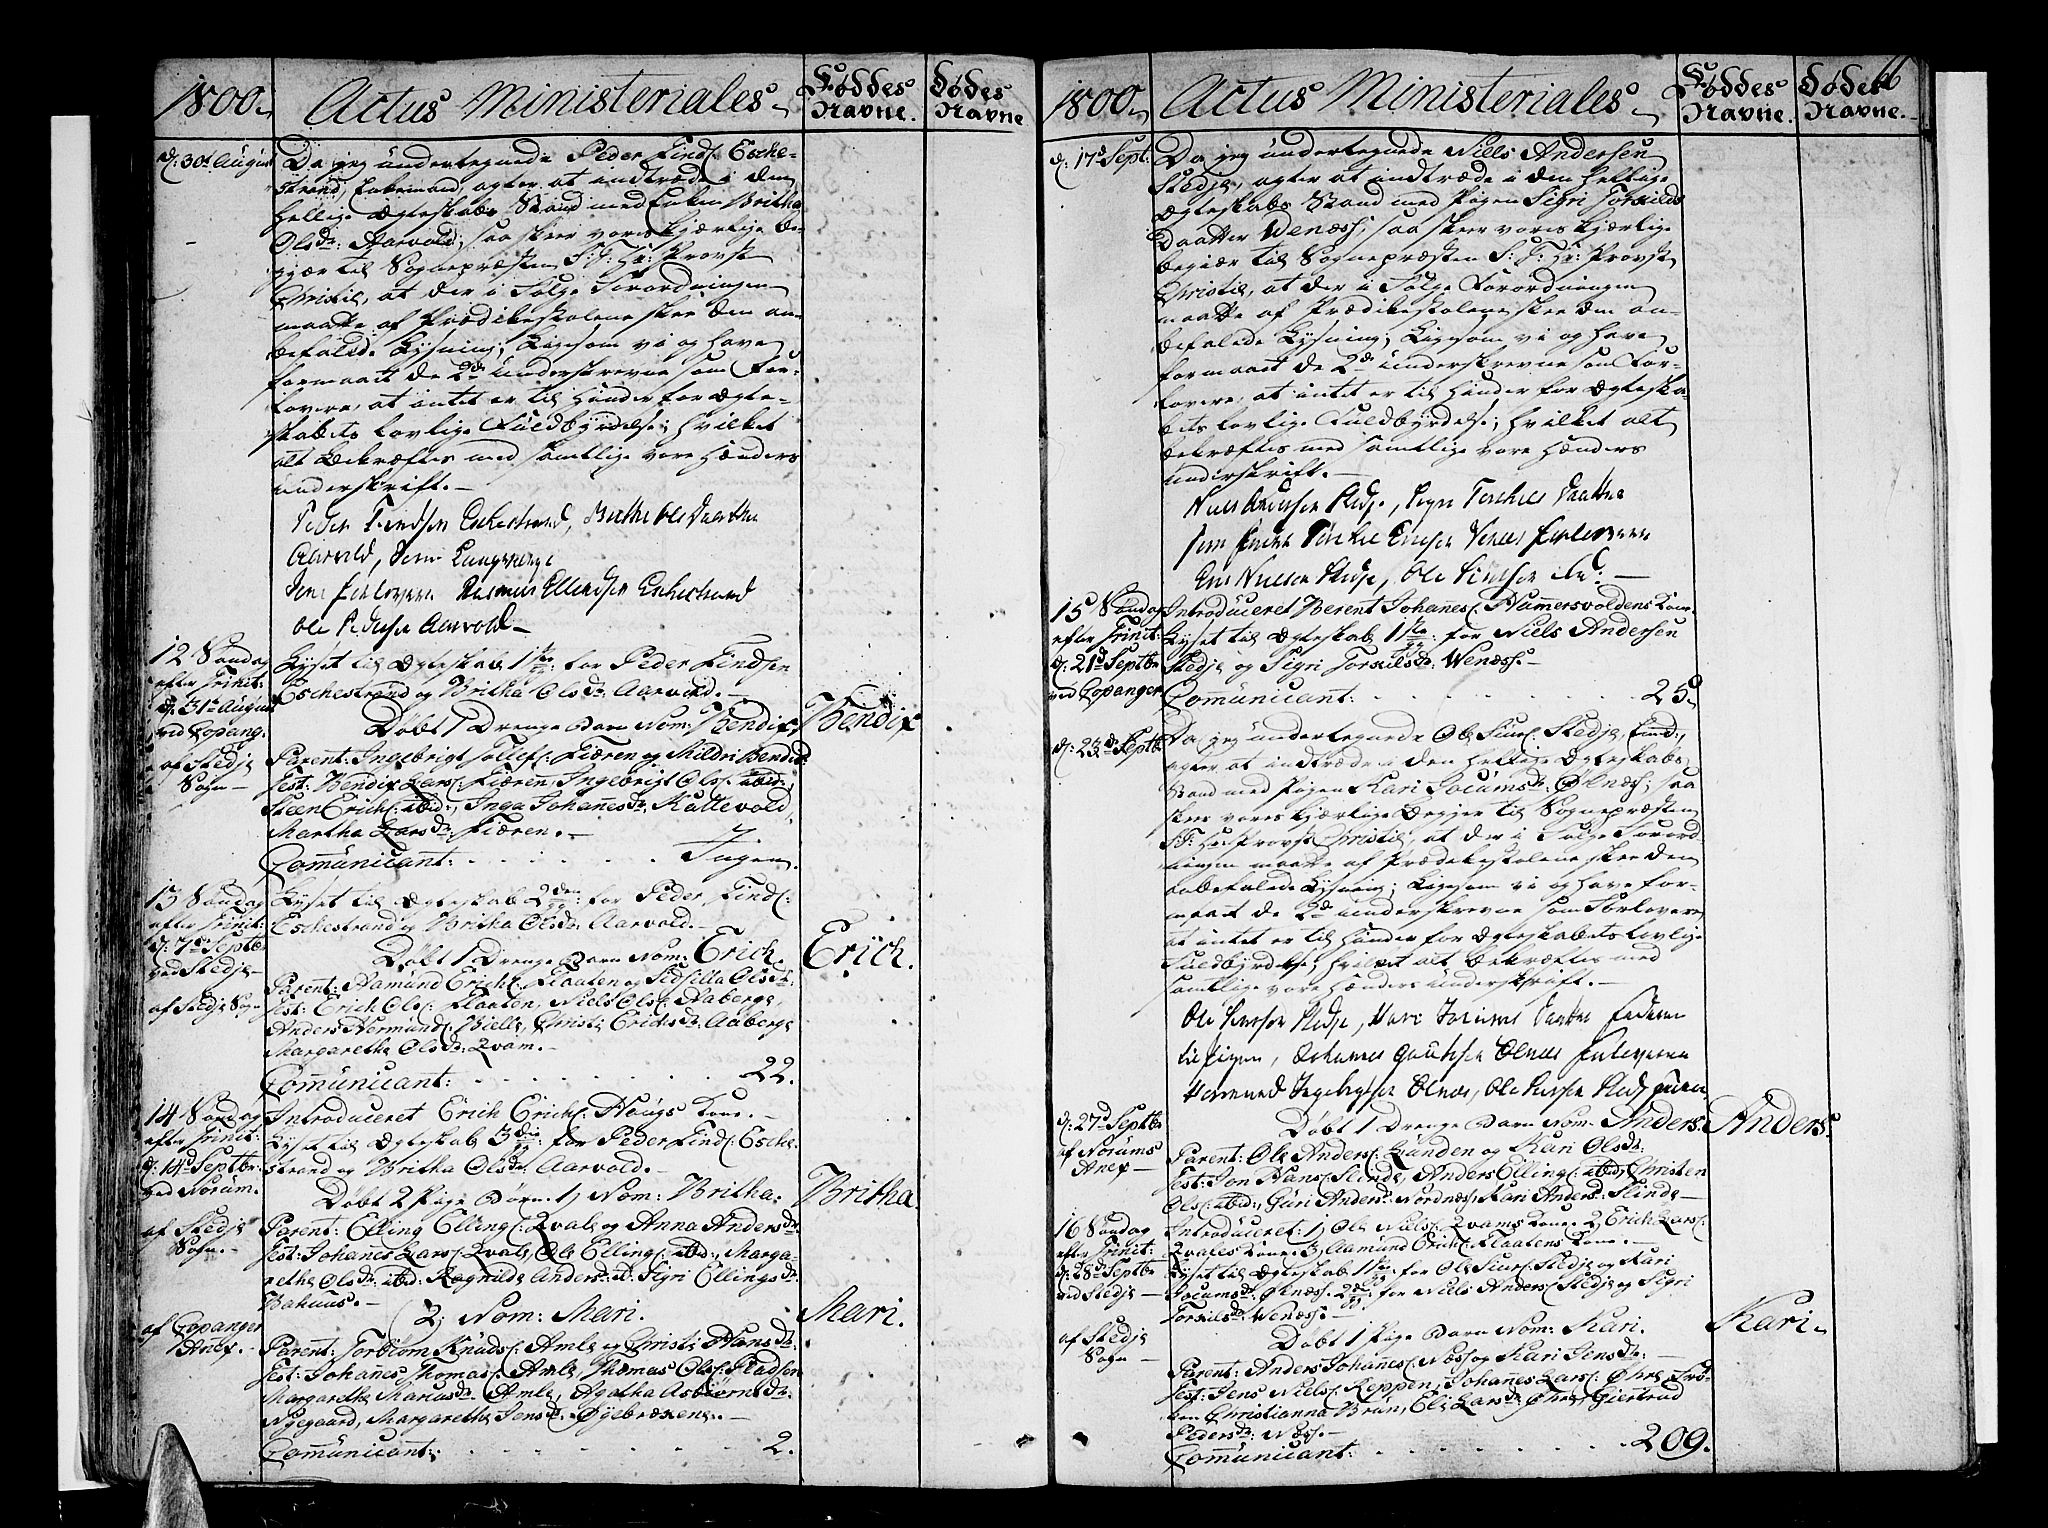 1800.
Actus Ministeriales.
Føddes Navne.
Dødes Navne
d: 30te August
Da jeg undertegnede Peder Finds: Esche-
strand, Enkemand, agter at indtræde i den
hellige Ægteskabs Stand med Enken Britha
Olsdr: Aarvold; saa skeer vores kjærlige Be-
gjær til Sognepræsten S: T: Hr: Provst
Christie, at der i Følge Forordningen
maatte af Prædikestolene skee den an-
befalede Lysning; Ligesom vi og have
formaaet de 2de underskrevne som For-
lovere, at intet er til Hinder for Ægte-
skabets lovlige Fuldbyrdelse; hvilket
alt Bekræftes med samtlige vore Hænders
underskrift.
Peder Findsen Eschestrand, Brithe Ols Daatter
Aarvold,
som Forlovere Rasmus Ellendsen Eschestrand
Ole Pedersen Aarvold
12 Søndag
efter Trinit:
d: 31te August
ved Copang:
Lyset til Ægteskab 1ste for Peder Findsen
Eschestrand og Britha Olsdr: Aarvold.
af Stedje
Sogn
Døbt 1 Drenge Barn Nom: Bendix,
Bendix
Parent: Ingebrigt Tollefs: Fiæren og Mildri Bendixdr:
Test: Bendix Lars: Fiæren, Ingebrigt Ols: ibid:,
Steen Erich: ibid:, Inga Johanesdr: Kattevold,
Martha Larsdr: Fiæren.
Comunicant: Ingen.
13 Søndag
efter Trinit:
d: 7de Septbr
ved Stedje
Lyset til Ægteskab 2den for Peder Finds:
Eschestrand og Britha Olsdr: Aarvold.
Døbt 1 Drenge Barn Nom: Erich.
Erich.
af Stedje Sogn
Parent: Aamund Erich: Flaaten og Sidsilla Olsdr:
Test: Erich Ols: Flaaten, Niels Ols: Aaberge,
Anders Nermund: Bielle, Christi Erichsdr: Aaberge
Margarethe Olsdr: Qvam.
Comunicant: 22.
14 Søndag
efter Trinit:
d: 14de Septbr:
ved Norum.
Introduceret Erich Erich: Hougs Kone.
Lyset til Ægteskab 3die: for Peder Finds: Esche-
strand og Britha Olsdr: Aarvold.
Døbt 2 Pige Børn: 1, Nom: Britha:
Britha.
af Stedje
Sogn.
Parent: Elling Elling: Qvale og Anna Andersdr:
Test: Johanes Lars: Qvale, Ole Elling: ibid:, Marga-
rethe Olsdr: ibid: Ragnilde Andersdr: Sigri Ellingsdr:
Bahuus.
2, Nom: Mari.
Mari.
af Copanger
Anex.
Parent: Torbiørn Knuds: Amle og Christi Hansdr:
Test: Johanes Thomas: Amle, Thomas Ols: Pladsen
Margarethe Mariusdr: Amle, Agatha Asbiørnsdr:
Nyegaard, Margarethe Jensdr: Øyebræcene.
Comunicant: 2.
1800.
Actus Ministeriales.
Føddes Navne.
Dødes Navne.
66
d: 17de Sept:
Da jeg undertegnede Niels Andersen
Stedje, agter at indtræde i den Hellige
Ægteskabs Stand med Pigen Sigri Torkilds
Daatter Wenæss; saa skeer vores kjærlige
begiær til Sognepræsten S: T: Hr: Provst
Christie, at der i Følge Forordningen
maatte af Prædikestolene skee den an-
befalede Lysning; Ligesom vi og have
formaaet de 2de underskrevne som For-
lovere, at intet er til Hinder for Ægteska-
bets lovlige Fuldbyrdelse; hvilket alt
bekræftes med samtlige vore Hænders
underskrift.
Niels Andersen Stedje, Sigri Torkils Daatter
som Forlovere
Nielsen Stedje, Ole
15 Søndag
efter Trinit:
d: 21de Septbr
ved Copanger
Introduceret Berent Johanes: Nummersvoldens Kone.
Lyset til Ægteskab 1ste: for Niels Andersen
Stedje og Sigri Torkilsdr: Wenæss.
Comunicant: 25.
d: 23de Septbr
Da jeg undertegnede Ole Siurs: Stedje, Eind:,
agter at indtræde i den hellige Ægteskabs
Stand med Pigen Kari Jocumsdr: Ølnæss; saa
skeer vores kjærlige Begjer til Sognepræsten
S: T: Hr: Provst Christie, at der i Følge Forord-
ningen maatte af Prædikestolene skee den
anbefalede Lysning; Ligesom vi og have for-
maaet de 2de underskrevne som Forlovere,
at intet er til Hinder for Ægteskabets lovlige
Fuldbyrdelse; hvilket alt bekræftes med
samtlige vore Hænders underskrift.
Ole Siursen Stedje, Kari Jocums Daatter
til Pigen, Johannes Ølnæs Forlovere
Nermund Ingebrigtsen Ølnæs, Ole Stedje
d: 27de Septbr
af Norums
Anex
Døbt 1 Drenge Barn Nom: Anders.
Anders.
Parent: Ole Anders: Lunden og Kari Olsdr:
Test: Jon Hans: Slinde, Anders Elling: ibid:, Christen
Ols: ibid:, Guri Andersdr: Nordnæs, Kari Andersdr: Slinde
16 Søndag
efter Trinit:
d: 28de Septbr
ved Stedje
Introduceret: 1, Ole Niels: Qvams Kone. 2, Erich Lars:
Qvales Kone. 3, Aamund Erich: Flaatens Kone.
Lyset til Ægteskab 1ste for Ole Siurs: Stedje og Kari
Jocumsdr: Ølnæss. 2den for Niels Anders: Stedje og Sigri
Torkilsdr: Wenæss.
Døbt 1 Pige Barn Nom: Kari.
Kari
af Stedje
Sogn
Parent: Anders Johanes: Næss og Kari Jensdr:
Test: Jens Niels: Reppen, Johanes Lars: Øhre, Frø-
ken Christianna Brun, Eli Larsdr: Øhre, Giertrud
Pedersdr: Næss.
Comunicant: 209.